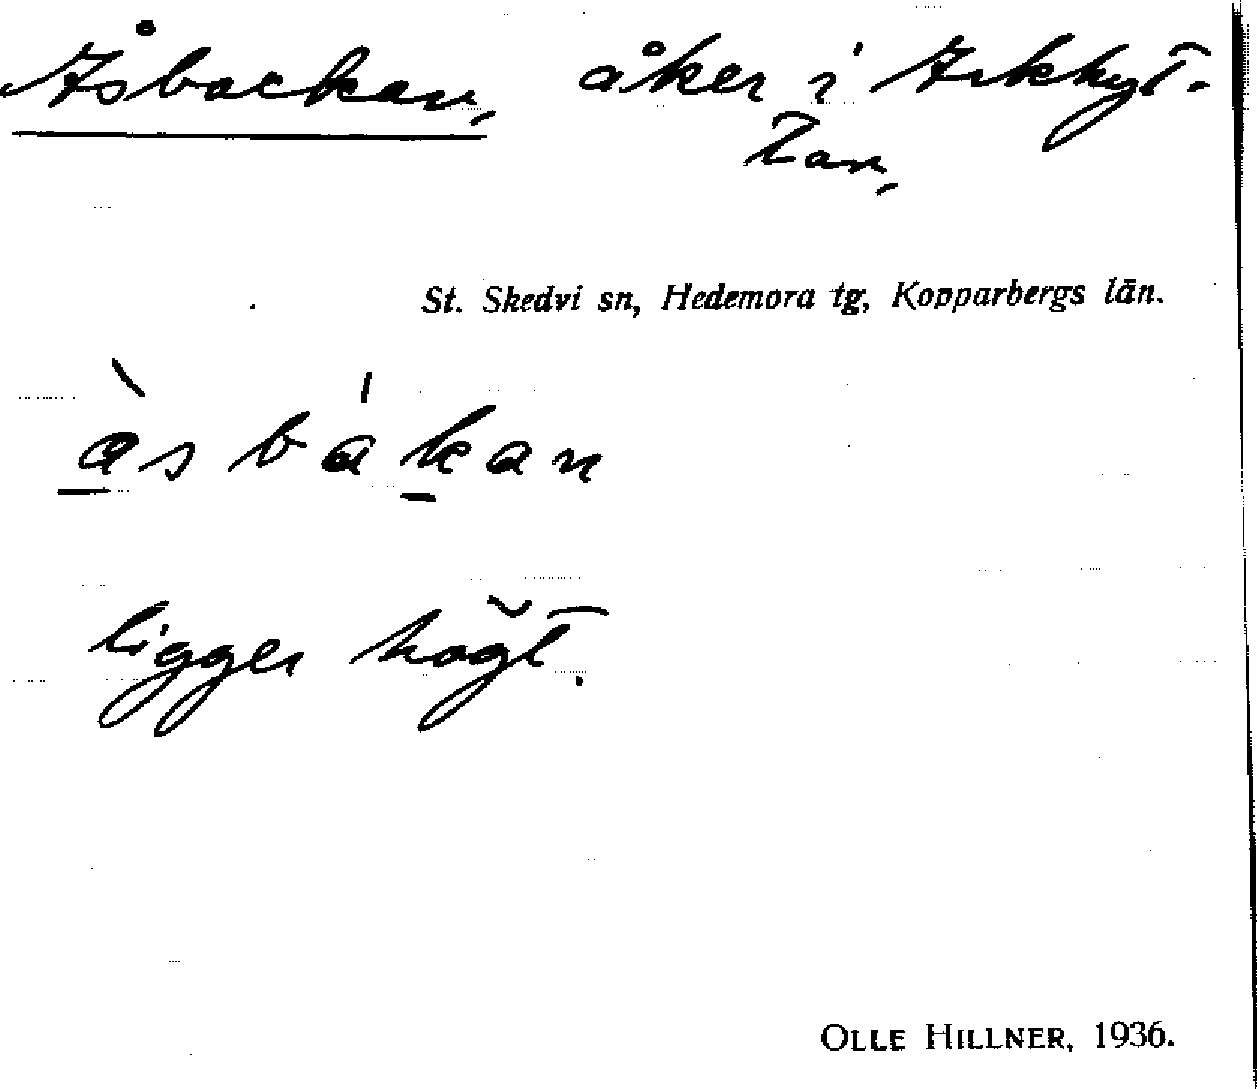 Åsbackan, åker i Arkhyt-
tan,
St. Skedvi sn, Hedemora tg, Kopparbergs län.
å̀sbákan
ligger högt.
OLLE HILLNER, 1936.